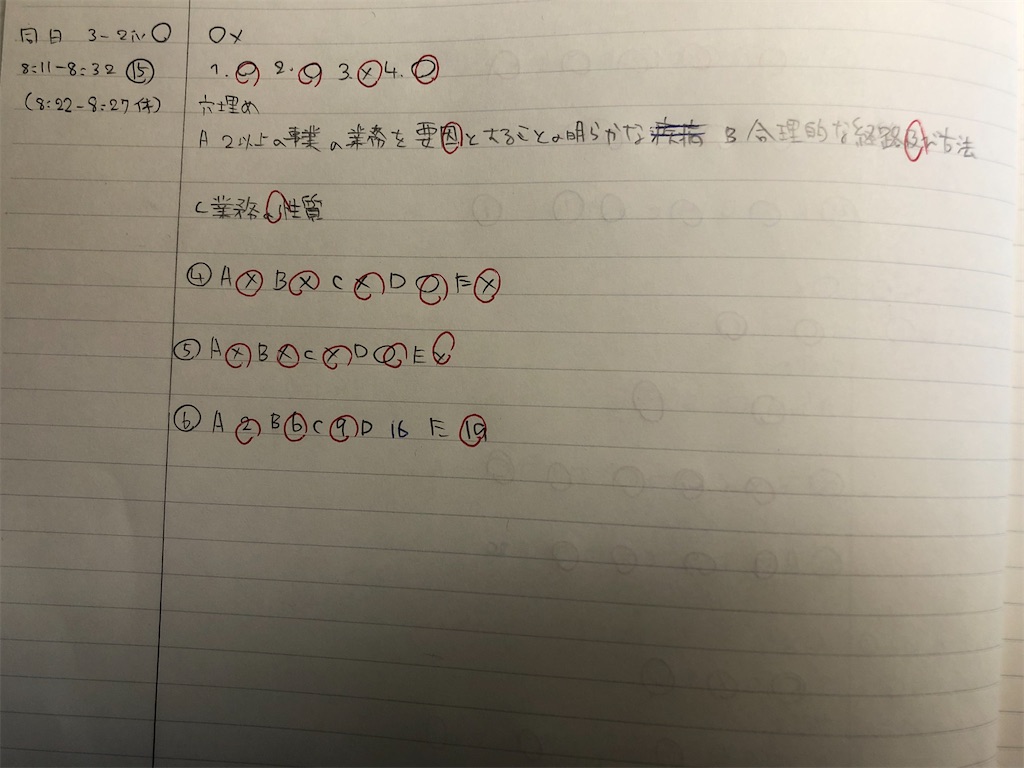 同日 3-2iv〇 〇×
8:11-8:32 ⑮ 1.〇 2.〇 3.× 4.〇
(8:22-8:27休) 穴埋め
A 2以上の事業の業務を要因とすることの明らかな B 合理的な経路及び方法
C 業務の性質
④ A× B× C× D〇 E×
⑤ A× B× C× D〇 E×
⑥ A2 B6 C9 D16 E19